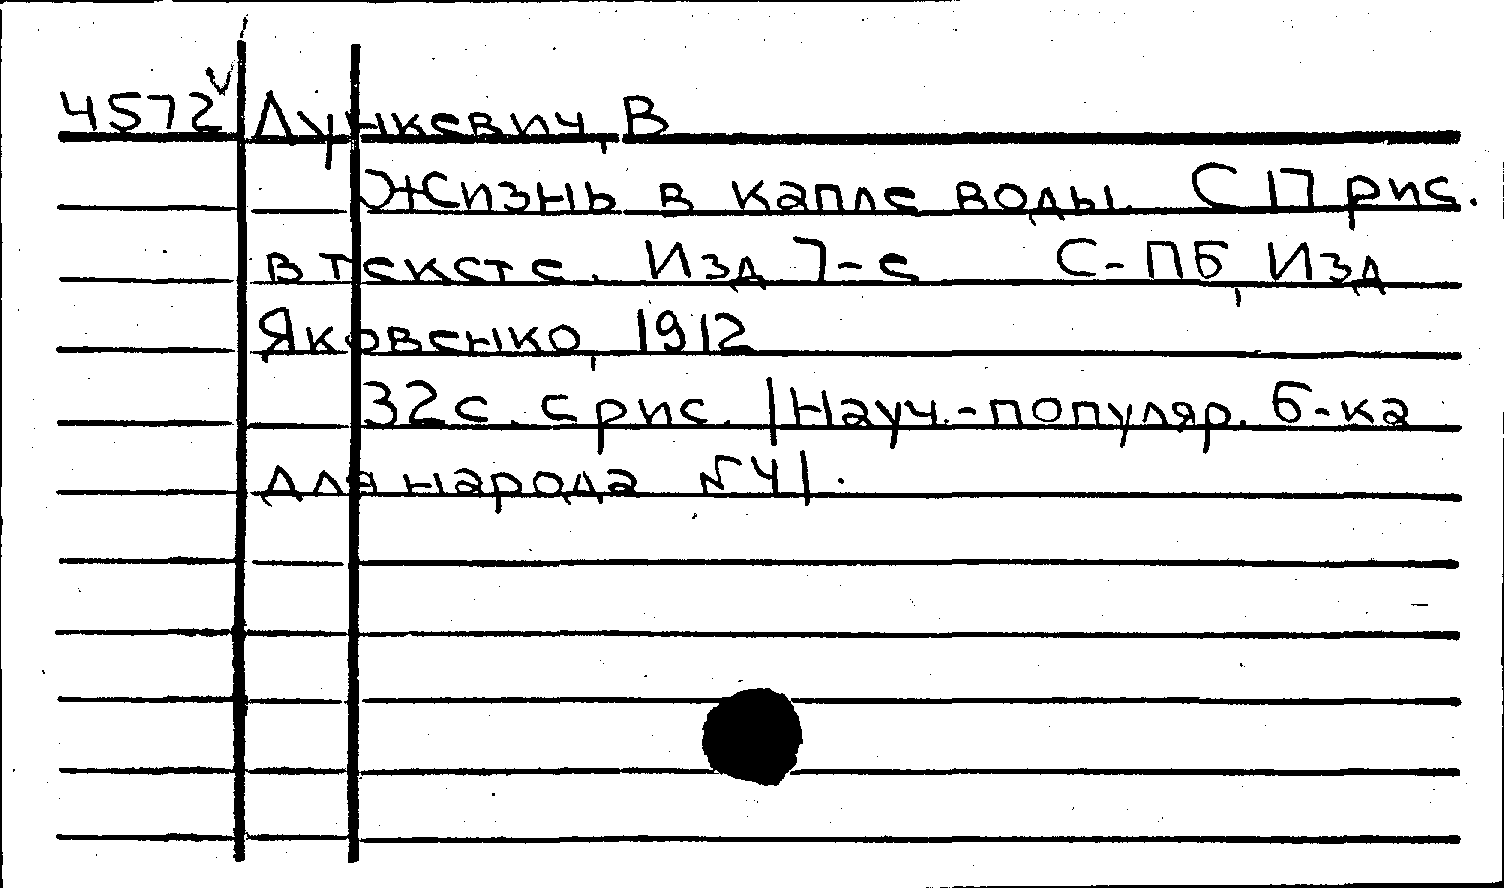 4572 Лункевич, В
Жизнь в капле воды. С 17 рис.
в тексте. Изд 7-е С-ПБ, Изд
Яковенко, 1912
32 с. с рис. |Науч.-популяр. б-ка
для народа №41.